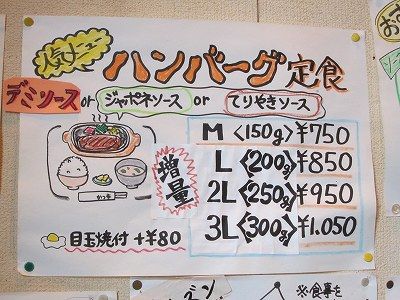 人気ナンバーワン
ハンバーグ定食
デミソース or ジャポネソース or てりやきソース
増量
M〈150g〉¥750
L〈200g〉¥850
2L〈250g〉¥950
3L〈300g〉¥1.050
目玉焼付+¥80
※食事を